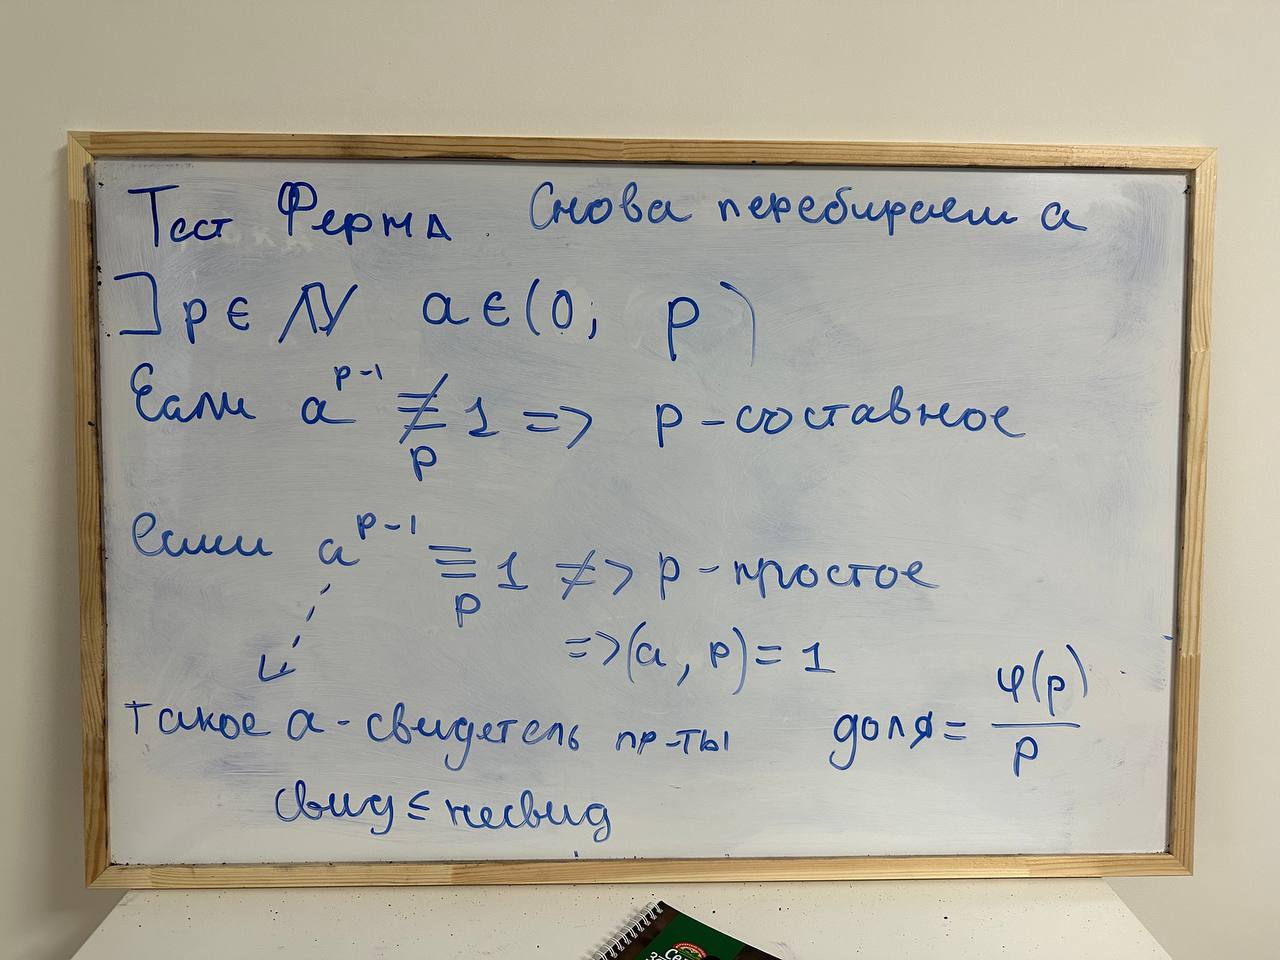 Тест Ферма. Снова перебираем а
] p ∈ ℕ a ∈ (0; p)
Если a^{p-1} ≢_p 1 => p - составное
если a^{p-1} ≡_p 1 ≠> p - простое
=> (a, p) = 1
такое а - свидетель пр-ты доля = φ(p)/p
свид ≤ несвид